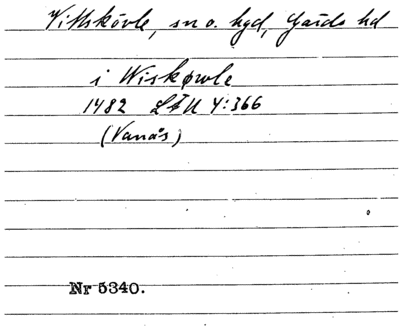 Vittskövle, sn o. hgd, Gärds hd
i Wiskøwle
1482 LÄU 4:366
(Vanås)
Nr 5340.